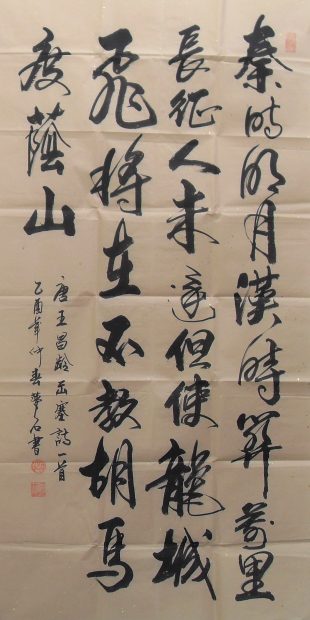 秦時明月漢時關萬里
長征人未還但使龍城
飛將在不教胡馬
度蔭山
唐王昌齡出塞詩一首
乙酉年仲春石書